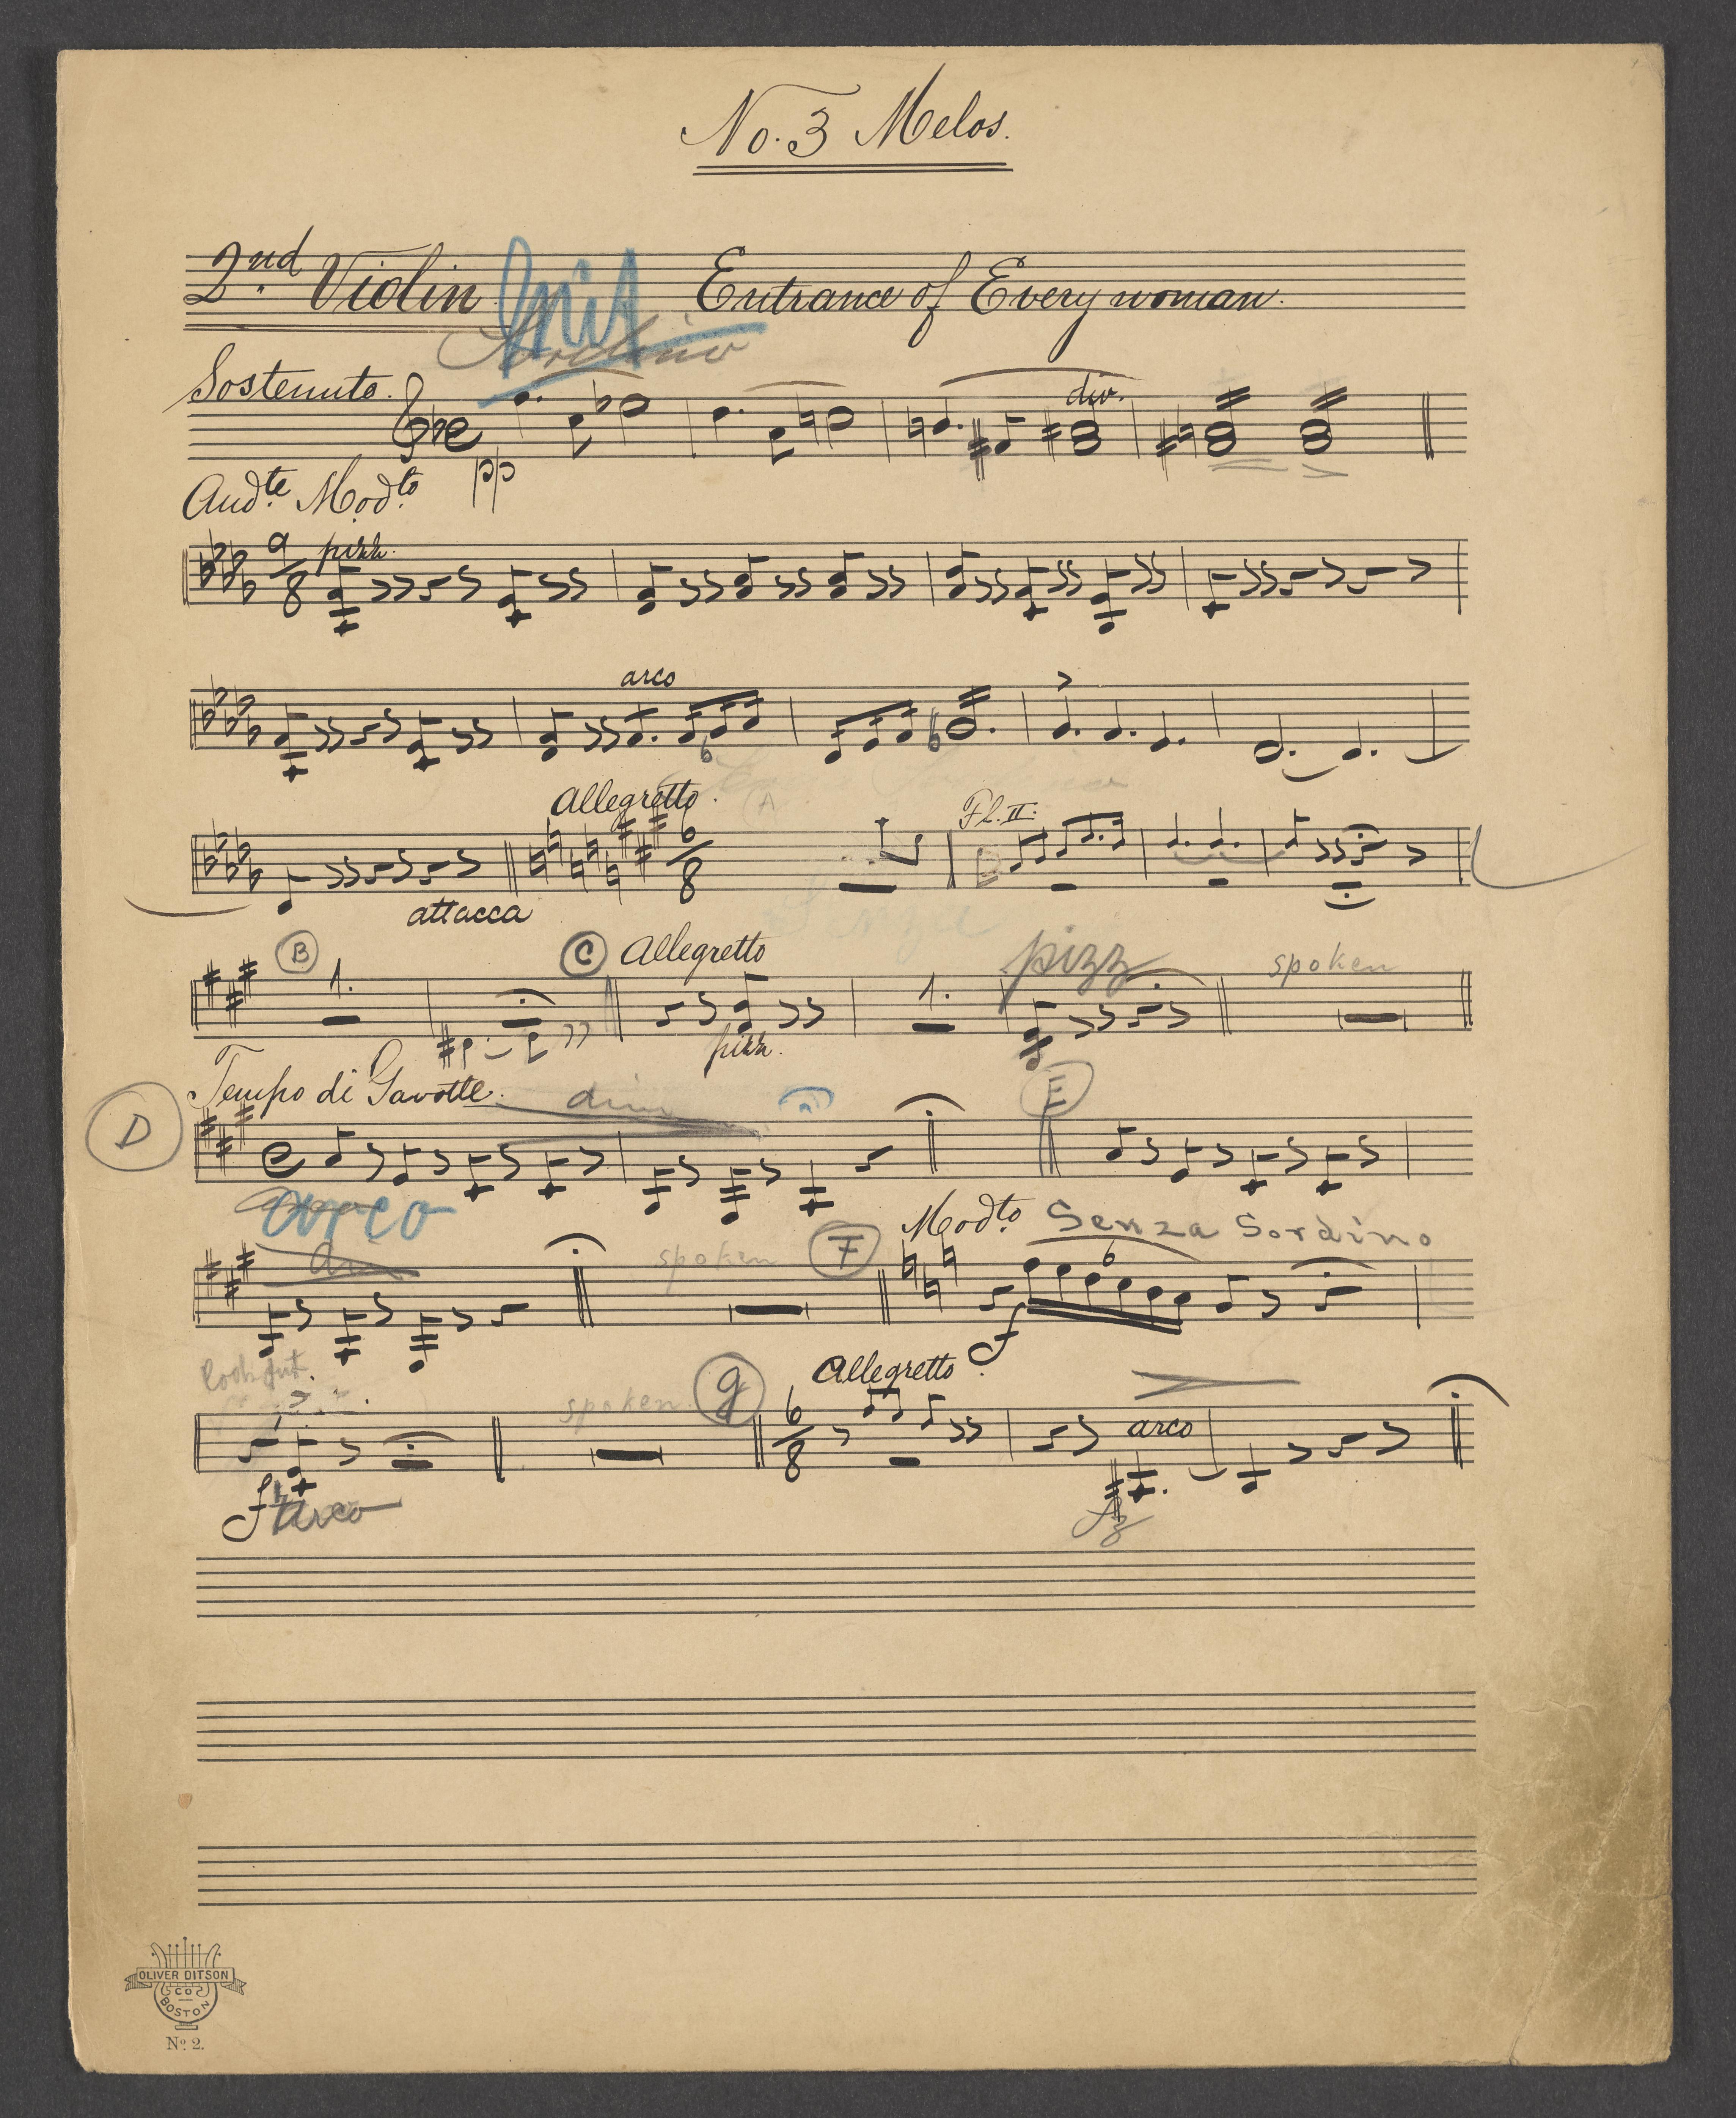 No. 3 Melos.
2nd Violin Entrance of Everywoman.
Sordino
Sostenuto.
div.
pp
Andte Modto
9 8 pizz.
arco
6
Allegretto.
A
Fl. II:
6 8
attacca
B 1. C Allegretto 1. pizz spoken
pizz.
D Tempo di Gavotte. dim E
arco
Modto Senza Sordino
dim spoken F 6
f
look out. spoken g Allegretto.
6 8 arco
f arco fz
OLIVER DITSON
CO
BOSTON
No. 2.